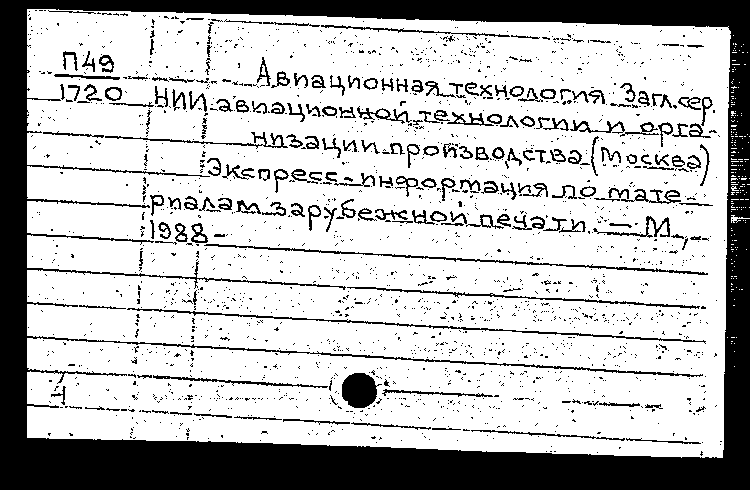 П49
1720
Авиационная технология Загл.сер.
НИИ авиационной технологии и орга-
низации производства (Москва)
Экспресс-информация по мате-
риалам зарубежной печати. — М.,-
1988-